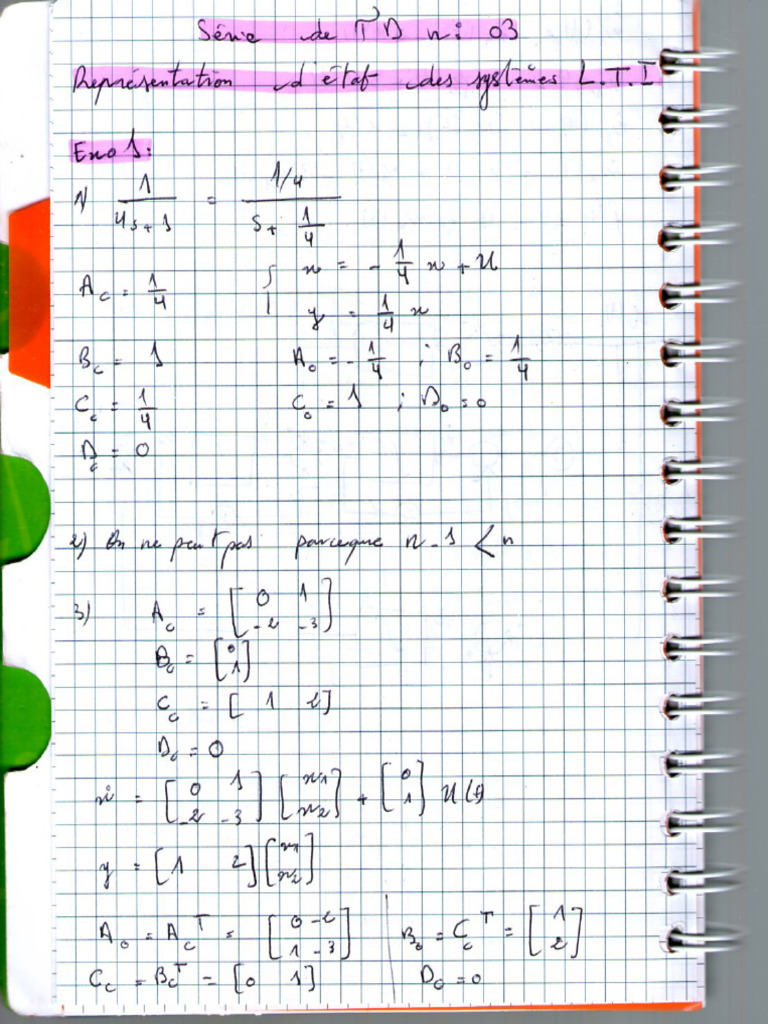 Série de TD n: 03
Représentation d'état des systèmes L.T.I
Exo 1:
1) 1/(4s+1) = (1/4)/(s+1/4)
A_c = 1/4 { ẋ = -1/4 x + u
y = 1/4 x
B_c = 1 A_o = -1/4 ; B_o = 1/4
C_c = 1/4 C_o = 1 ; D_o = 0
D_c = 0
2) On ne peut pas parceque n-1 < n
3) A_c = [0 1; -2 -3]
B_c = [0; 1]
C_c = [1 2]
D_c = 0
ẋ = [0 1; -2 -3] [x1; x2] + [0; 1] u(t)
y = [1 2] [x1; x2]
A_o = A_c^T = [0 -2; 1 -3] | B_o = C_c^T = [1; 2]
C_c = B_c^T = [0 1] D_o = 0